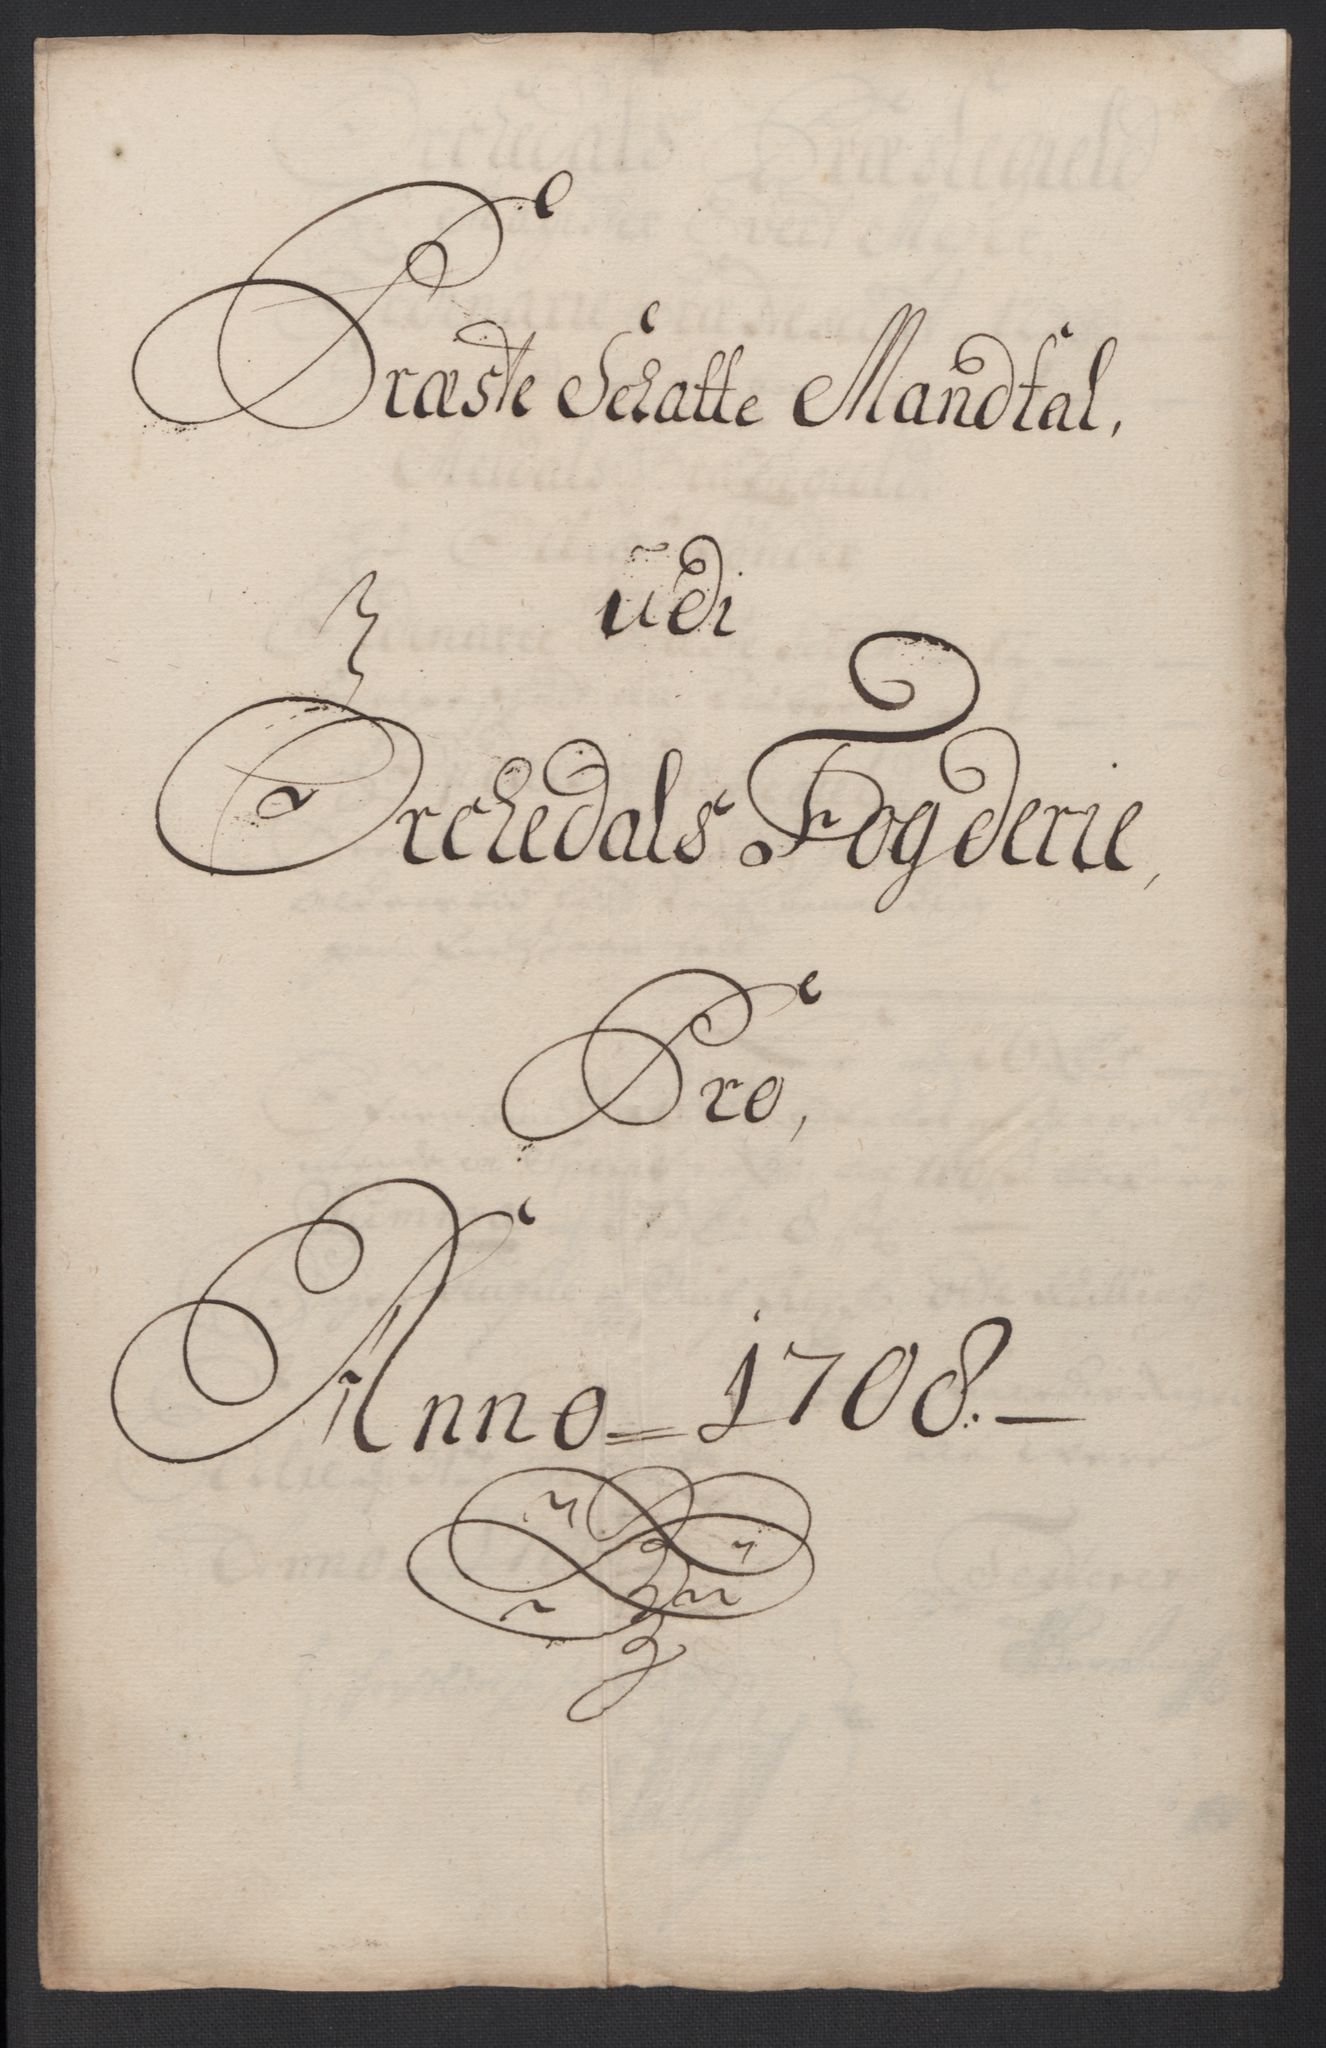 Præste Schatte Mandtal,
udi
Orchedals Fogderie,
Pro,
Anno = 1708. —